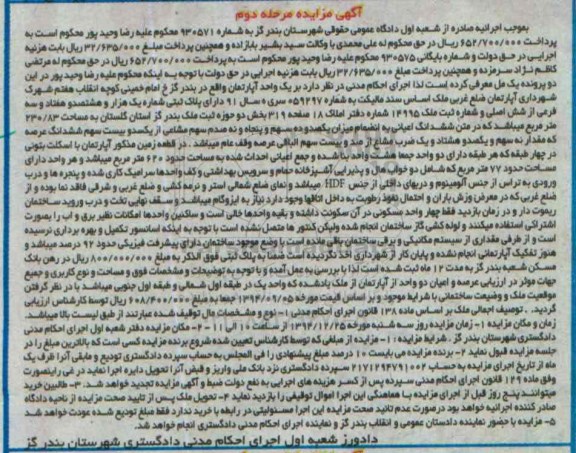 آگهی مزایده مرحله دوم
بموجب اجرائیه صادره از شعبه اول دادگاه عمومی حقوقی شهرستان بندر گز به شماره ۹۳۰۵۷۱ محکوم علیه رضا وحید پور محکوم است به
پرداخت ۶۵۲/۷۰۰/۰۰۰ ریال در حق محکوم له علی محمدی با وکالت سید بشیر بابازاده و همچنین پرداخت مبلغ ۳۲/۶۳۵/۰۰۰ ریال بابت هزینه
اجرایی در حق دولت و شماره بایگانی ۹۳۰۵۷۵ محکوم علیه رضا وحید پور محکوم است به پرداخت ۶۵۲/۷۰۰/۰۰۰ ریال در حق محکوم له مرتضی
کاظم نژاد سرمزده و همچنین پرداخت مبلغ ۳۲/۶۳۵/۰۰۰ ریال بابت هزینه اجرایی در حق دولت با توجه به اینکه محکوم علیه رضا وحید پور در این
دو پرونده یک مل معرفی کرده است لذا اجرای احکام مدنی در نظر دارد بر یک واحد آپارتمان واقع در بندر گز خ امام خمینی کوچه انقلاب هفتم شهرک
شهرداری آپارتمان ضلع غربی ملک اساس سند مالکیت به شماره ۰۵۹۲۹۷ سری ه سال ۹۱ دارای پلاک ثبتی شماره یک هزار و هشتصدو هفتاد و سه
فرعی از شش اصلی و شماره ثبت ملک ۱۴۹۹۵ شماره دفتر املاک ۱۸ صفحه ۳۱۹ بخش دو حوزه ثبت ملک بندر گز استان گلستان به مساحت ۲۳۰/۸۳
متر مربع میباشد که در متن ششدانگ اعیانی به انضمام میزان یکصدو ده سهم و پنجاه و نه صدم سهم مشاعی از یکصدو بیست سهم ششدانگ عرصه
که مقدار نه سهم و یکصدو هشتاد و یک ضرب مشاع از نه صد و بیست سهم الباقی عرصه وقف عام میباشد . در قطعه زمین مذکور آپارتمان با اسکلت بتونی
در چهار طبقه که هر طبقه دارای دو واحد جمعا هشت واحد بنا شده و جمع اعیانی احداث شده به مساحت حدود ۶۲۰ متر مربع میباشد و هر واحد دارای
مساحت حدود ۷۷ متر مربع که شامل دو خواب هال و پذیرایی آشپزخانه حمام و سرویس بهداشتی و کف واحدها سرامیک کاری شده و پنجره ها و درب
ورودی به تراس از جنس آلومینیوم و دربهای داخلی از جنس HDF میباشد و نمای ضلع شمالی آستر و نرمه کشی و ضلع غربی و شرقی فاقد نما بوده و از
ضلع غربی که در معرض وزش باران و احتمال نفوذ رطوبت به داخل اتاقها وجود دارد نیاز به ایزوگام میباشد و سقف نهایی تخت و درب ورود ساختمان
ریموت دار و در زمان بازدید فقط چهار واحد مسکونی در آن سکونت داشته و بقیه واحدها خالی است و ساکنین واحدها امکانات نظیر برق و اب را بصورت
اشتراکی استفاده میکنند و لوله کشی گاز ساختمان انجام شده ولیکن کنتور ها متصل نشده است با توجه به اینکه اسانسور تکمیل و بهره برداری نرسیده
است و از طرفی مقداری از سیستم مکانیکی و برقی ساختمان باقی مانده است با وضع موجود ساختمان دارای پیشرفت فیزیکی حدود ۹۲ درصد میباشد و
هنوز تفکیک آپارتمانی انجام نشده و پایان کار از شهرداری اخذ نگردیده است ضمنا به پلاک ثبتی فوق الذکر به مبلغ ۸۰۰/۰۰۰/۰۰۰ ریال در رهن بانک
مسکن شعبه بندر گز به مدت ۱۲ ماه ثبت شده است لذا با بررسی به عمل آمده و با توجه به توضیحات و مشخصات فوق و مساحت و نوع کاربری و جمیع
جهات موثر در ارزیابی عرصه و اعیان دو واحد از آپارتمان از ملک یادشده که واحد یک در طبقه اول شمالی و طبقه اول جنوبی میباشد با در نظر گرفتن
موقعیت ملک و وضیعت ساختمانی با شرایط موجود و بر اساس قیمت مورخه ۱۳۹۴/۰۹/۰۵ جمعا به مبلغ ۶۰۸/۴۰۰/۰۰۰ ریال توسط کارشناس ارزیابی
گردید . توصیف اجمالی ملک بر اساس ماده ۱۳۸ قانون اجرای احکام مدنی ۱- نوع و مشخصات مال توقیف شده عبارتند از طبق لیست بالا میباشد
زمان و مکان مزایده ۱- زمان مزایده روز سه شنبه مورخه ۱۳۹۴/۱۲/۲۵ از ساعت ۱۰ الی ۱۱ - ۲- مکان مزایده دفتر شعبه اول اجرای احکام مدنی
دادگستری شهرستان بندر گز . شرایط مزایده : ۱- مزایده از مبلغی که توسط کارشناس تعیین شده شروع برنده مزایده کسی است که بالاترین مبلغ را در
جلسه مزایده قبول نماید ۲- برنده مزایده می بایست ۱۰ درصد مبلغ پیشنهادی را فی المجلس به حساب سپرده دادگستری تودیع و مابقی آنرا ظرف یک
ماه از تاریخ اجرای مزایده به حساب ۲۱۷۱۲۹۴۷۹۱۰۰۲ سپرده دادگستری نزد بانک ملی واریز و فیض آنرا تحویل دایره اجرا نماید در غی راینصورت
وفق ماده ۱۲۹ قانون اجرای احکام مدنی سپرده پس از کسر هزینه های اجرایی به نفع دولت ضبط و آگهی مزایده تجدید خواهد شد. ۳- طالبین خرید
میتوانند پنج روز قبل از اجرای مزایده با هماهنگی این اجرا اموال توقیفی را بازدید نماید ۴- تحویل ملک پس از تایید صحت مزایده از ناحیه دادگاه
صادر کننده اجرائیه خواهد بود در صورت عدم تائید صحت مزایده این اجرا مسئولیتی در رابطه با خرید ندارد فقط مبلغ تودیع شده عودت خواهد شد
۵- مزایده با حضور نماینده دادستان عمومی و انقلاب بندر گز و نماینده اجرای احکام مدنی دادگستری انجام خواهد شد.
دادورز شعبه اول اجرای احکام مدنی دادگستری شهرستان بندر گز